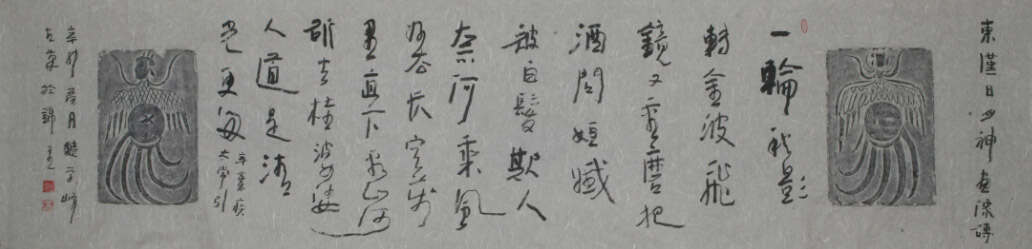 東漢日月神畫像磚
一輪秋影
轉金波飛
鏡又重磨把
酒問姮娥
被白髮欺人
奈何乘風
好去長空萬
里直下看山河
斫去桂婆娑
人道是清
光更多
辛棄疾
太常引
辛卯月魏學峰
於錦里